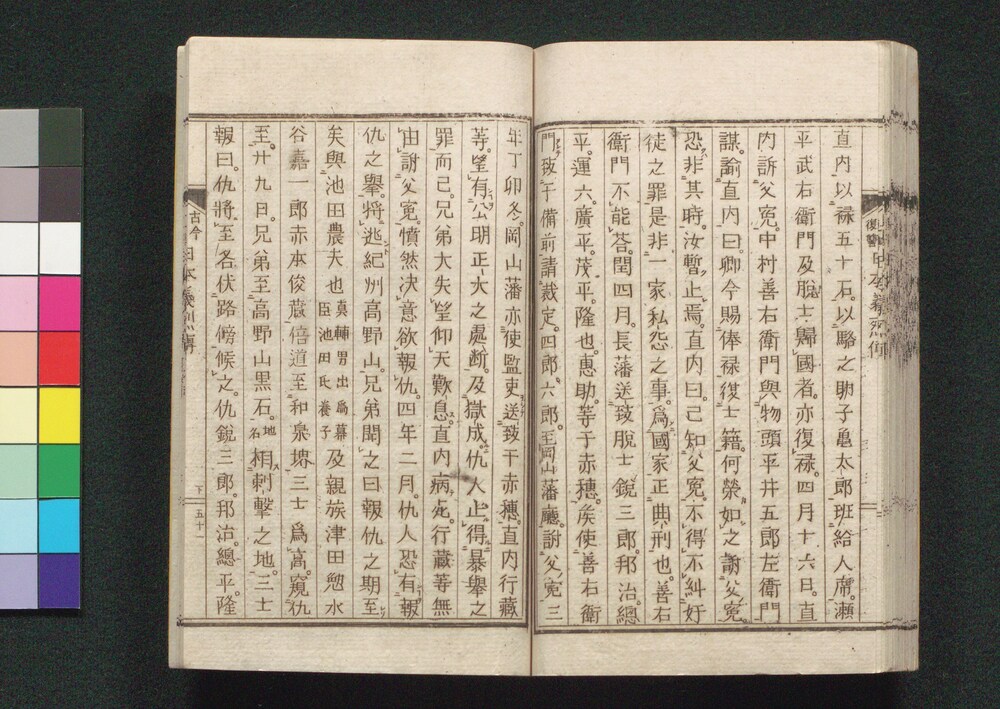 直内以祿五十石。以駱之助子亀太郎班給人席。瀬
平武右衛門及脫士歸國者。亦復祿。四月十六日。直
內訴父寃。中村善右衛門與物頭平井五郎左衛門
謀諭直內曰。卿今賜俸祿復士籍。何榮如之。謝父寃。
恐非其時。汝暫止焉。直內曰。已知父寃。不得不糾奸
徒之罪。是非一家私怨之事。爲國家正典刑也。善右
衛門不能荅。閏四月。長藩送致脫士銳三郎。邦治。總
平。運六。廣平。茂平。隆也。惠助。等于赤穗。矦使善右衛
門。致于備前請裁定。四郎。六郎。至岡山藩廳。謝父寃三
年丁卯冬。岡山藩亦使監吏送致于赤穗。直內行藏
等。望有公明正大之處断。及獄成。仇人止得暴舉之
罪而已。兄弟大失望仰天歎息。直內病死。行藏等無
由謝父寃。憤然決意欲報仇。四年二月。仇人恐有報
仇之舉。將逃紀州高野山。兄弟聞之曰報仇之期至
矣與池田農夫也眞輔男出爲幕臣池田氏養子及親族津田勉水
谷嘉一郎赤本俊藏倍道至和泉堺三士爲高。窺仇
至。廿九日。兄弟至高野山黒石。地名相刺擊之地。三士
報曰。仇將至各伏路傍候之。仇銳三郎。邦治。總平。隆
古今
日本義烈傳
下
五十一
復讐